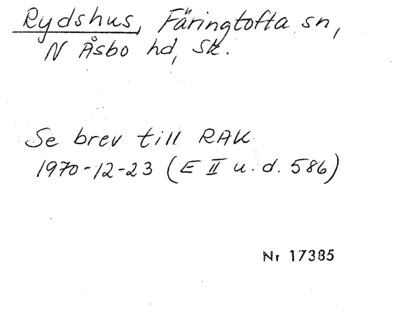 Rydshus, Färingtofta sn,
N Åsbo hd, Sk.
Se brev till RAK
1970-12-23 (E II u. d. 586)
Nr 17385